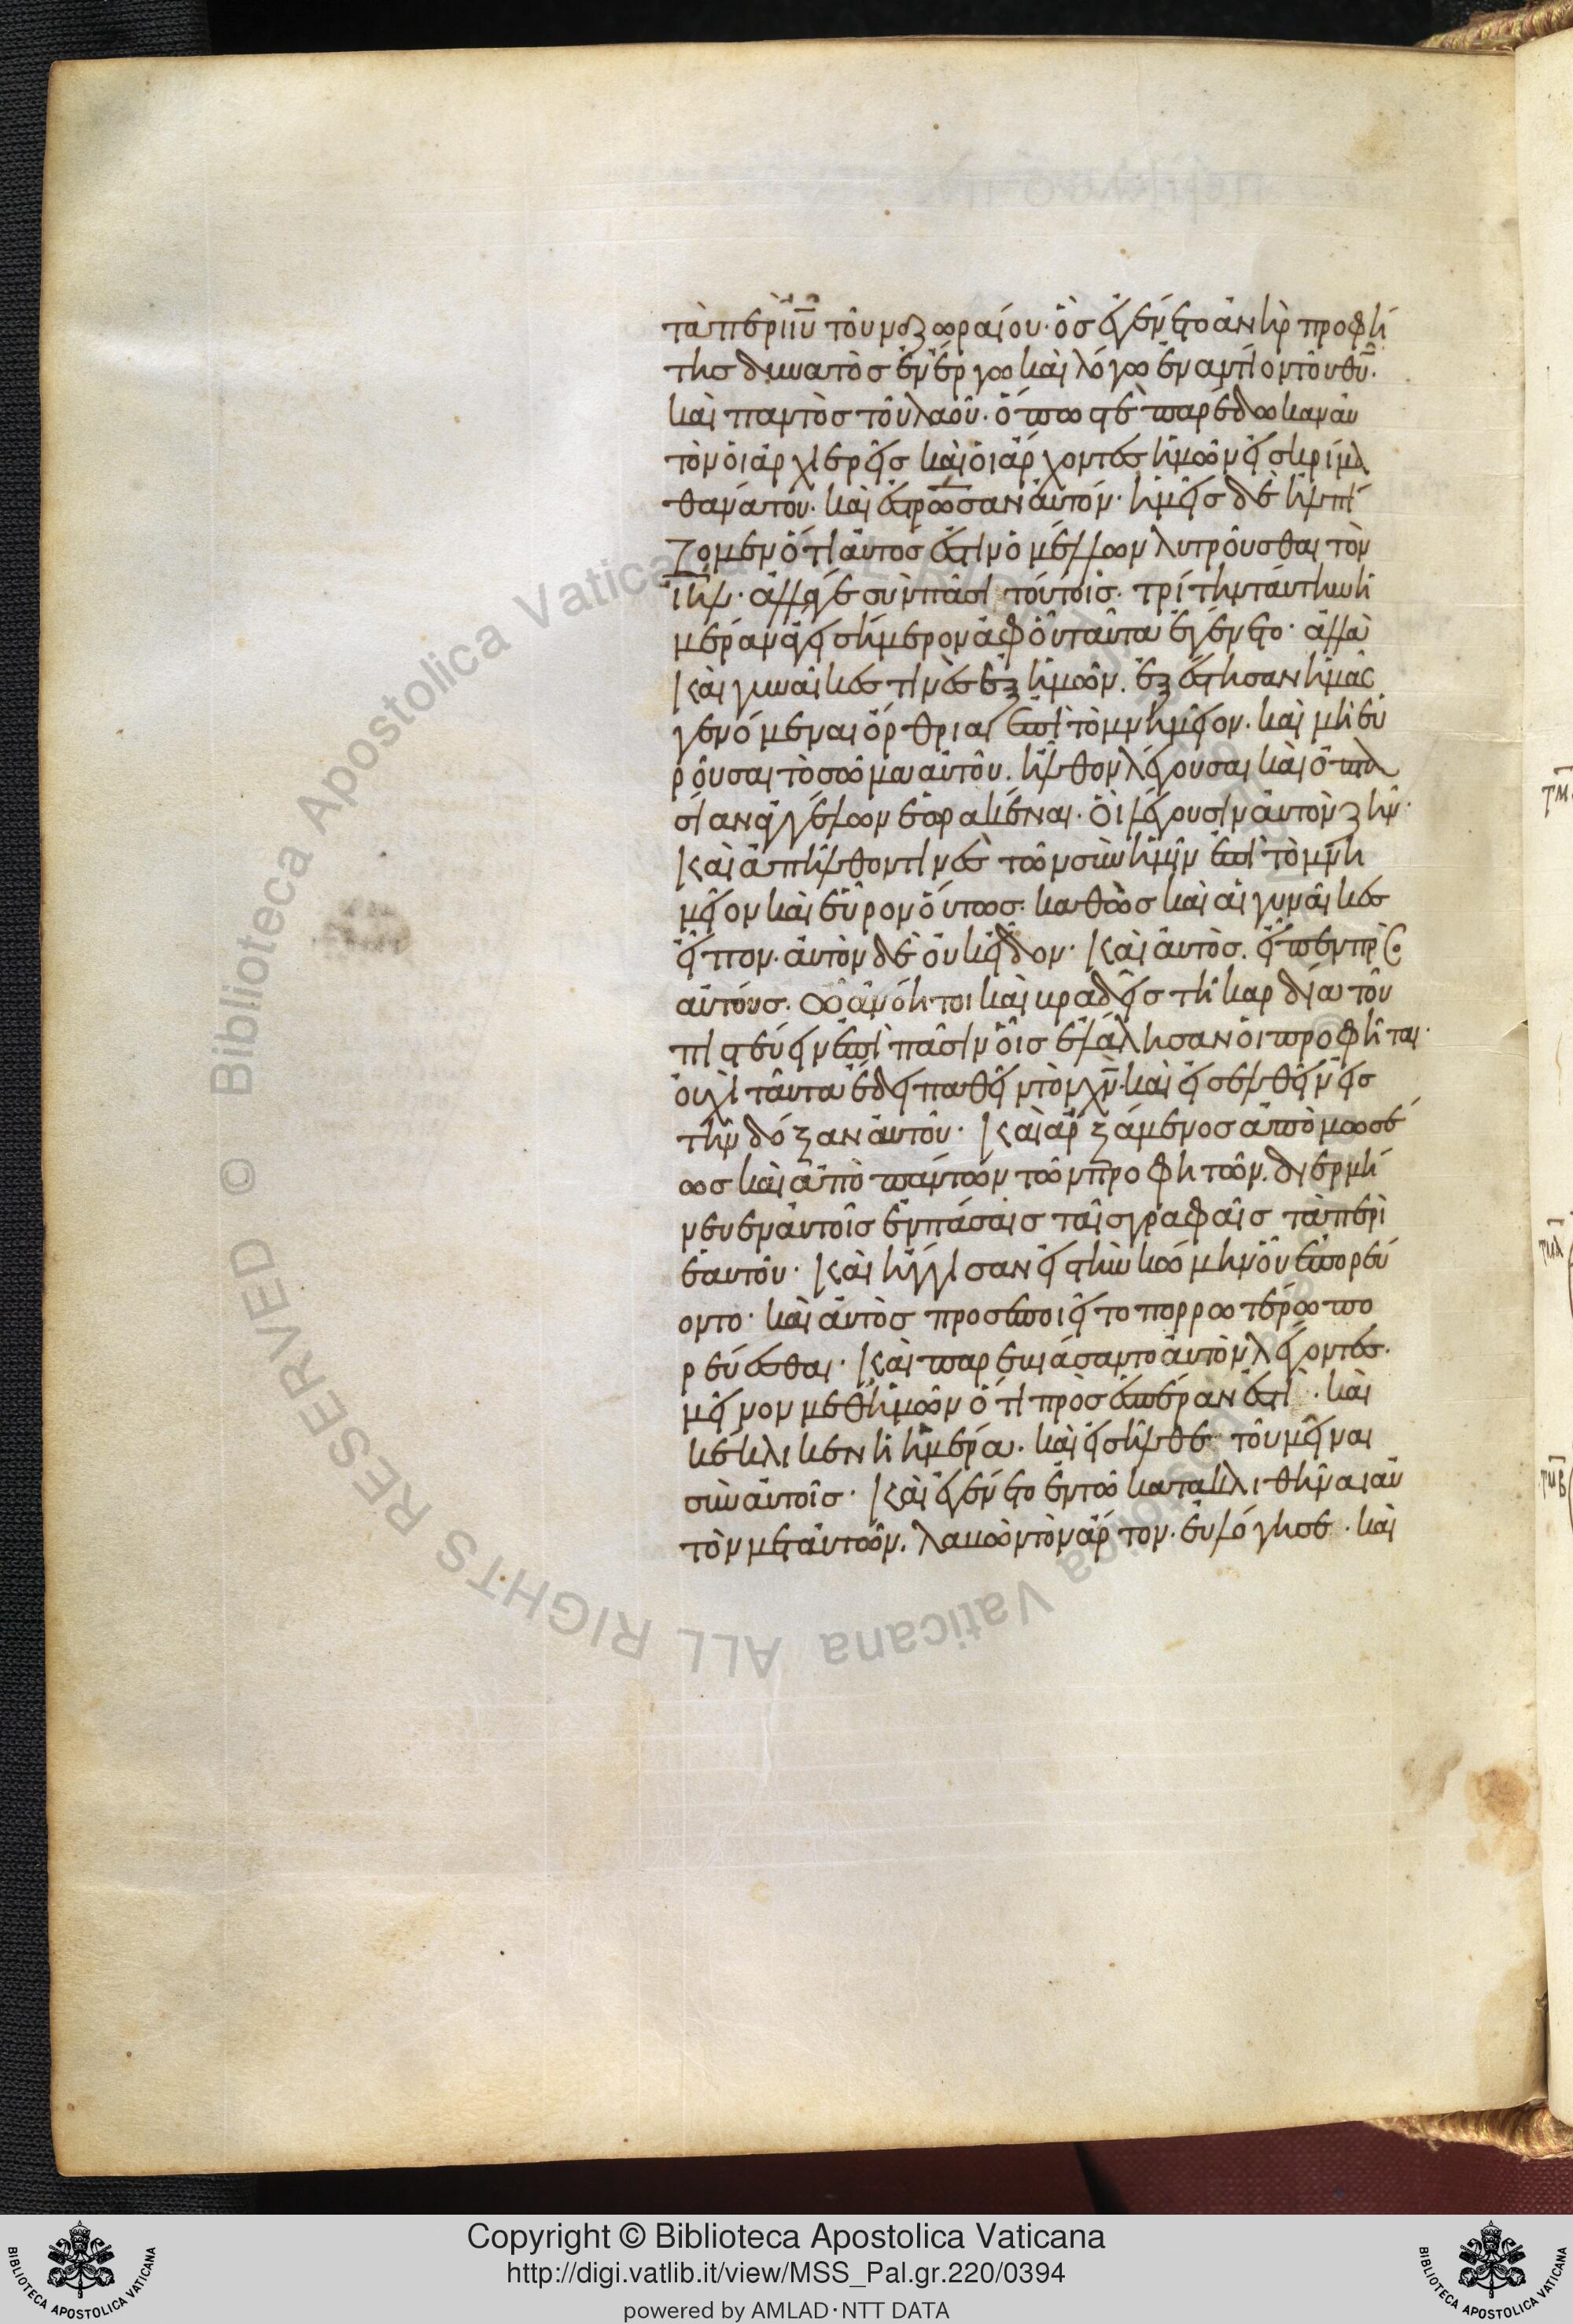 τὰ περὶ ιυ τοῦ ναζωραίου· ὃσ ἐγένετο ἀνὴρ προφή
τησ δυνατὸσ ἐν ἔργω καὶ λόγω ἐναντίον τοῦ θυ.
καὶ παντὸσ τοῦ λαοῦ· ὅπωσ τὲ παρέδωκαν αὐ
τὸν οἱ ἀρχιερεῖσ καὶ οἱ ἄρχοντεσ ἡμῶν εἰσ κρίμα
θανάτου· καὶ ἐσταύρωσαν αὐτόν· ἡμεῖσ δὲ ἠλπί
ζομεν ὅτι αὐτόσ ἐστιν ὁ μέλλων λυτροῦσθαι τὸν
ιηλ· ἀλλάγε σὺν πᾶσι τούτοισ· τρίτην ταύτην ἡ
μέραν ἄγει σήμερον ἀφ οὗ ταῦτα ἐγένετο· ἀλλὰ
Καὶ γυναῖκεσ τινὲσ ἐξ ἡμῶν. ἐξέστησαν ἡμᾶσ
γενόμεναι ὄρθριαι ἐπὶ τὸ μνημεῖον. καὶ μὴ εὑ
ροῦσαι τὸ σῶμα αὐτοῦ. ἦλθον λέγουσαι καὶ ὀπτα
σίαν ἀγγέλων ἑωρακέναι· οἳ λέγουσιν αὐτὸν ζῆν·
Καὶ ἀπῆλθον τινὲσ τῶν σὺν ἡμῖν ἐπὶ τὸ μνη
μεῖον καὶ εὗρον οὕτωσ· καθὼσ καὶ αἱ γυναῖκεσ
εἶπον. αὐτὸν δὲ οὐκ εἶδον· Καὶ αὐτὸσ. εἶπεν πρὸς
αὐτούσ. ὦ ἀνόητοι καὶ βραδεῖσ τῆ καρδία τοῦ
πιστεύειν ἐπὶ πᾶσιν οἷσ ἐλάλησαν οἱ προφῆται·
οὐχὶ ταῦτα ἔδει παθεῖν τὸν χν· καὶ εἰσελθεῖν εἰσ
τὴν δόξαν αὐτοῦ· Καὶ ἀρξάμενοσ ἀπὸ μωσέ
ωσ καὶ ἀπὸ πάντων τῶν προφητῶν. διερμή
νευεν αὐτοῖσ ἐν πάσαισ ταῖσ γραφαῖσ τὰ περὶ
ἑαυτοῦ· Καὶ ἤγγισαν εἰσ τὴν κώμην οὗ ἐπορεύ
οντο· καὶ αὐτὸσ προσεποιεῖτο πορρωτέρω πο
ρεύεσθαι· Καὶ παρεβιάσαντο αὐτὸν λέγοντεσ·
μεῖνον μεθ ἡμῶν ὅτι πρὸσ ἑσπέραν ἐστὶ· καὶ
κέκλικεν ἡ ἡμέρα· καὶ εἰσῆλθε τοῦ μεῖναι
σὺν αὐτοῖσ· Καὶ ἐγένετο ἐν τῶ κατακλιθῆναι αὐ
τὸν μετ αὐτῶν. λαβὼν τὸν ἄρτον. εὐλόγησε· καὶ
Copyright © Biblioteca Apostolica Vaticana
http://digi.vatlib.it/view/MSS_Pal.gr.220/0394
powered by AMLAD·NTT DATA